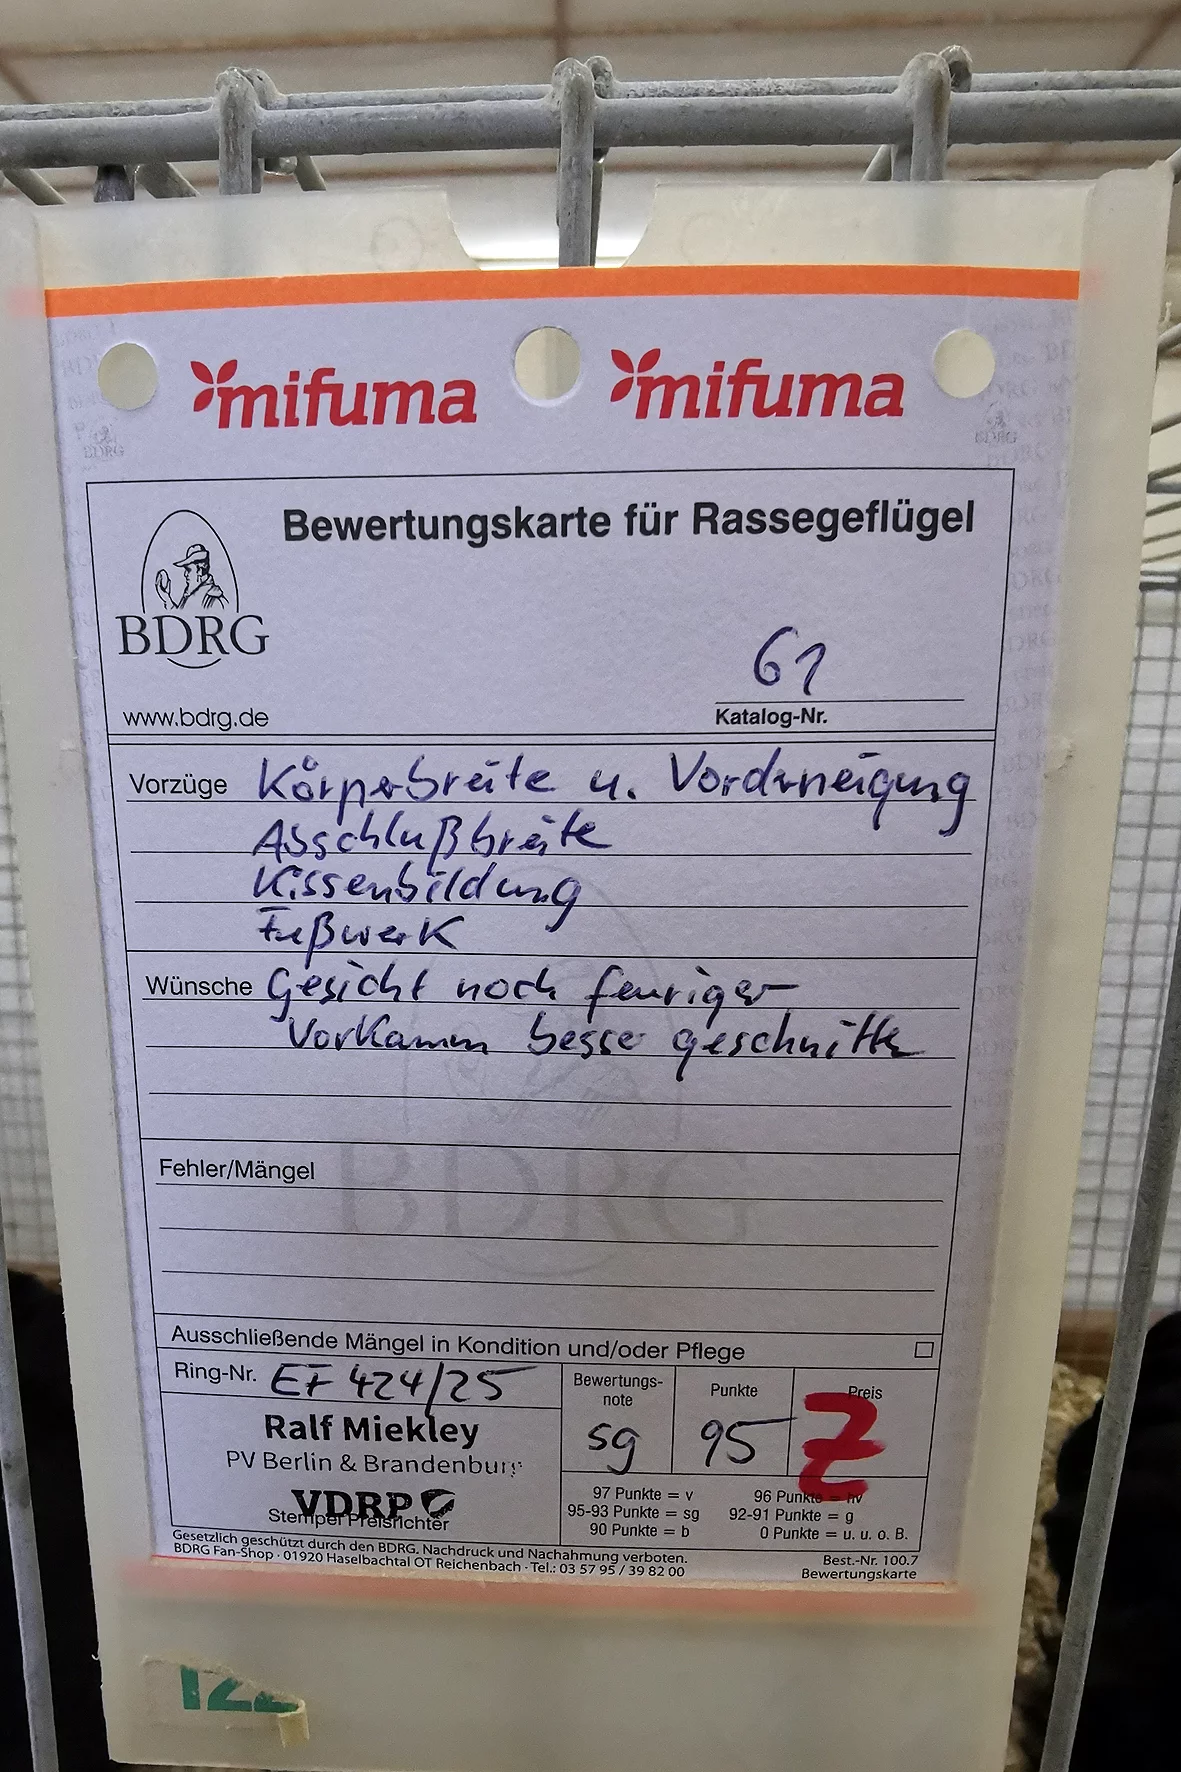 mifuma mifuma
Bewertungskarte für Rassegeflügel
BDRG
www.bdrg.de
61
Katalog-Nr.
Vorzüge Körperbreite u. Vorderneigung
Abschlußbreite
Kissenbildung
Fußwerk
Wünsche Gesicht noch feuriger
Vorkamm besser geschnitten
BDRG
Fehler/Mängel
Ausschließende Mängel in Kondition und/oder Pflege
Ring-Nr. EF 424/25
Bewertungs-
note
sg
Punkte
95
Preis
Z
Ralf Miekley
PV Berlin & Brandenburg
VDRP
Stempel Preisrichter
97 Punkte = v 96 Punkte = hv
95-93 Punkte = sg 92-91 Punkte = g
90 Punkte = b 0 Punkte = u. u. o. B.
Gesetzlich geschützt durch den BDRG. Nachdruck und Nachahmung verboten.
BDRG Fan-Shop · 01920 Haselbachtal OT Reichenbach · Tel.: 03 57 95 / 39 82 00
Best.-Nr. 100.7
Bewertungskarte